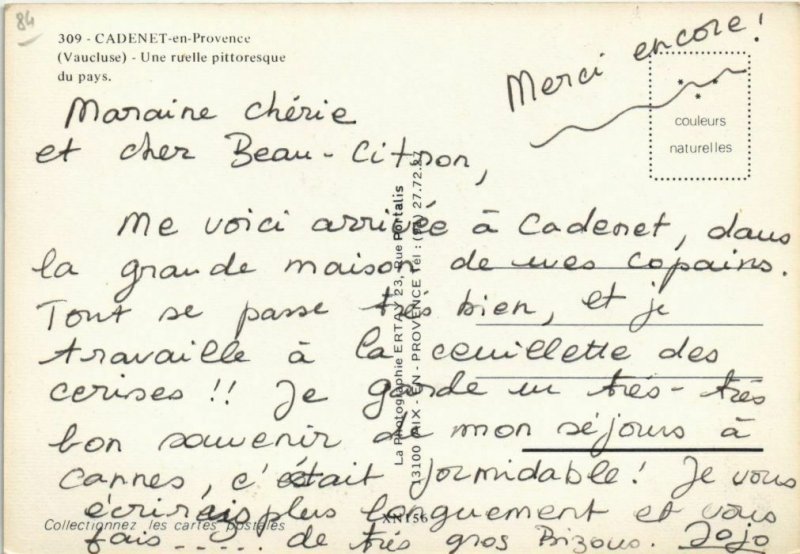 84
309 - CADENET-en-Provence
(Vaucluse) - Une ruelle pittoresque
du pays.
Merci encore!
couleurs
naturelles
Maraine chérie
et cher Beau-Citron,
Me voici arrivée à Cadenet, dans
la grande maison de mes copains.
Tout se passe très bien, et je
travaille à la ceuillette des
cerises !! Je garde un très-très
bon souvenir de mon séjours à
Cannes, c'était formidable! Je vous
écrirais plus longuement et vous
fais ..... de très gros Bizous. Jojo
La Photographie ERTA 23, Rue Portalis
13100 AIX - EN - PROVENCE Tél : 27.72.
Collectionnez les cartes postales
XN156